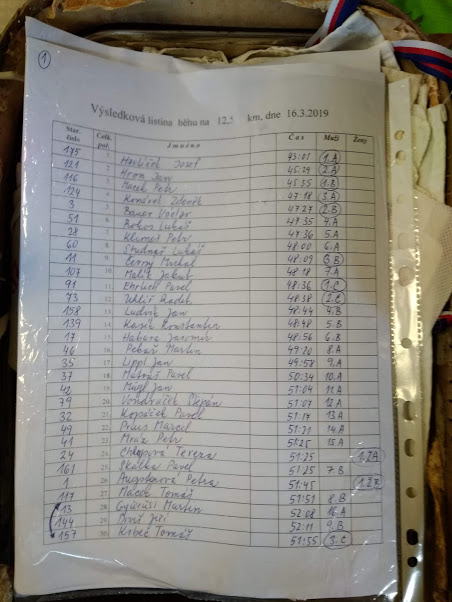 1
Výsledková listina běhu na 12,5 km, dne 16.3.2019
Star. číslo Celk. poř. Jméno Čas Muži Ženy
175 1. Havlíček Josef 43:01 1.A
121 2. Hron Jan 45:29 2.A
116 3. Macek Petr 45:35 1.B
124 4. Zdeněk 47:18 3.A
3 5. Bauer Václav 47:27 2.B
51 6. Lukáš 47:35 4.A
28 7. Klimeš Petr 47:36 5.A
60 8. Lukáš 48:00 6.A
11 9. Černý Michal 48:09 3.B
107 10. Malík Jakub 48:18 7.A
91 11. Ehrlich Pavel 48:36 1.C
73 12. Uhlíř Radek 48:38 2.C
158 13. Ludvík Jan 48:44 4.B
139 14. Kasík Konstantin 48:48 5.B
17 15. Habara Jaromír 48:56 6.B
46 16. Pekař Martin 49:20 8.A
35 17. Lippl Jan 49:58 9.A
37 18. Matouš Pavel 50:34 10.A
42 19. Jan 51:04 11.A
79 20. Vondráček Štěpán 51:07 12.A
32 21. Kopáček Pavel 51:17 13.A
49 22. Marcel 51:21 14.A
41 23. Mráz Petr 51:25 15.A
24 24. Tereza 51:25 1.ŽA
161 25. Skálka Pavel 51:25 7.B
1 26. Petra 51:45
117 27. Macek Tomáš 51:51 8.B
13 28. Martin 52:08 16.A
144 29. Jiří 52:11 9.B
157 30. Krbec Tomáš 51:55 3.C